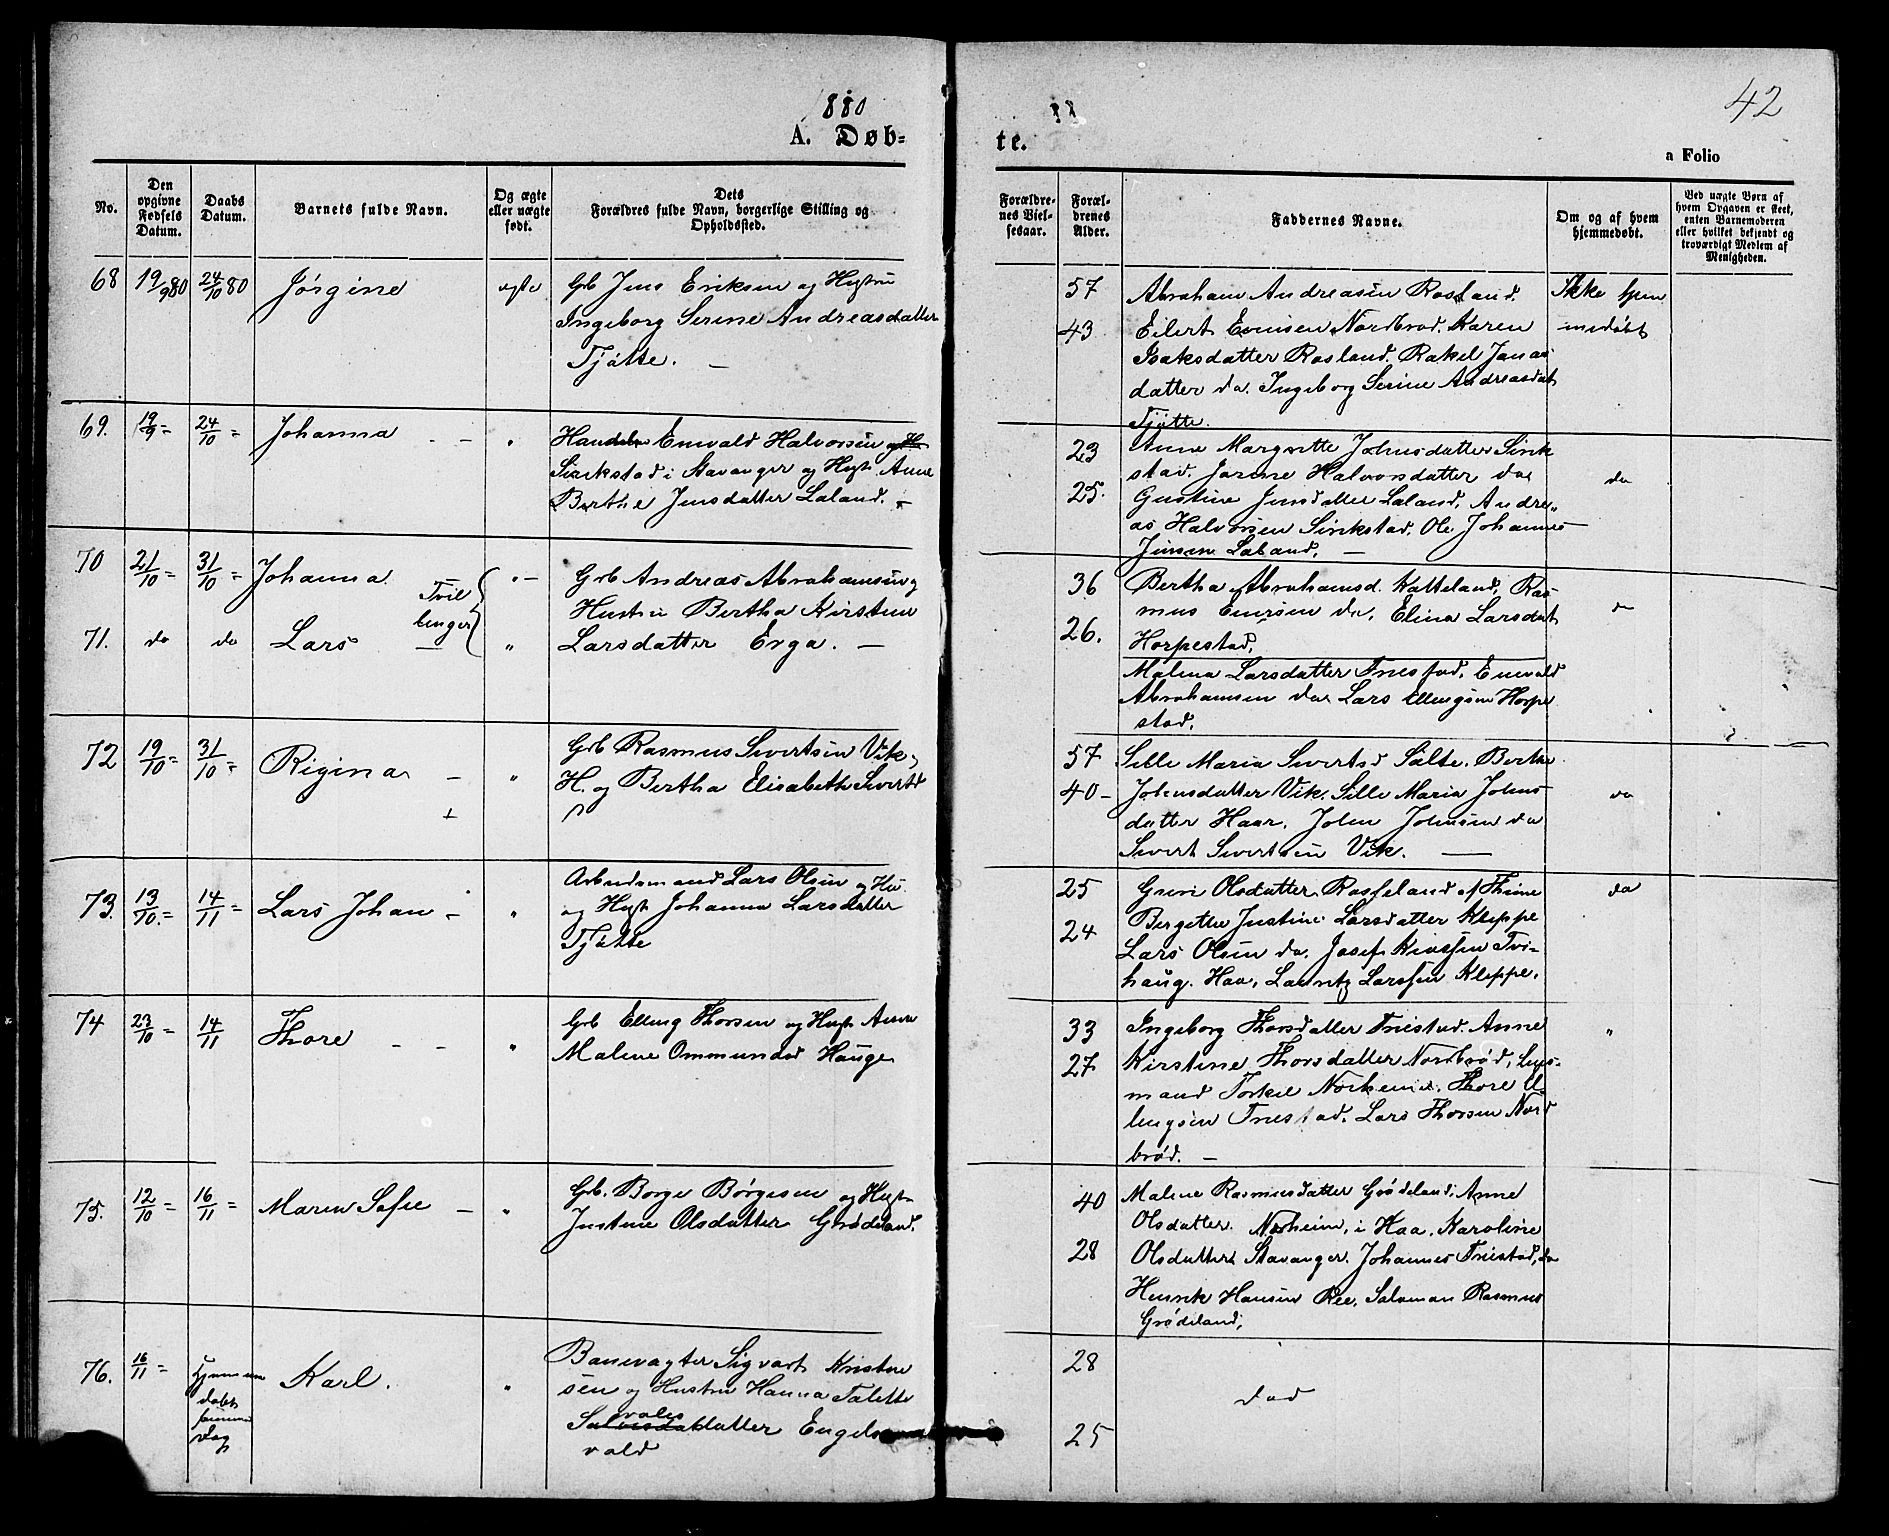 1880
42
A. Døb=
te.
a Folio
No.
Den
opgivne
Fødsels
Datum.
Daabs
Datum.
Barnets fulde Navn.
Og ægte
eller uægte
født.
Dets
Forældres fulde Navn, borgerlige Stilling og
Opholdssted.
Forældre-
nes Viel-
sesaar.
Foræl-
drenes
Alder.
Faddernes Navne.
Om og af hvem
hjemmedøbt.
Ved uægte Børn af
hvem Opgaven er skeet,
enten Barnemoderen
eller hvilket bekjendt og
troværdigt Medlem af
Menigheden.
68 19/9 80 24/10 80 Jørgine ægte
Grb Jens Eriksen og Hustru
Ingeborg Serine Andreasdatter
Tjøtte. —
57
43
Abraham Andreasen Rosland.
Eilert Enersen Nordbrød. Karen
Isaksdatter Rosland. Rakel Jonas
datter do. Ingeborg Serine Andreasdat
Tjøtte.
Ikke hjem
medøbt
69. 19/9 = 24/10 = Johanna - - "
Enevald Halvorsen
Sirikstad i Stavanger og Hust Anne
Berthe Jensdatter Laland. -
23
25.
Anne Margrette Johnsdatter Sirik
stad. Halvorsdatter do
Gustine Jensdatter Laland, Andre„
as Halvorsen Sirikstad. Ole Johannes
Jensen Laland. —
do
70 21/10 = 31/10 = Johanna
71. do do Lars —
Tvil
linger
" -
"
Grb Andreas Abrahamsen og
Hustru Bertha Kirstine
Larsdatter Erga. —
36
26.
Bertha Abrahamsd. Katteland, Ras
mus Enersen do, Elina Larsdat
Horpestad,
Malena Larsdatter Friestad, Enevald
Abrahamsen do Lars Ellingsen Horpe
stad.
do
72 19/10 = 31/10 = Rigina - "
+
Grb Rasmus Sivertsen Vik,
H. og Bertha Elisabethe Sivertsd
57
40-
Sille Maria Sivertsd Salte. Berthe
Johnsdatter Vik. Sille Maria Johns
datter Haar. John Johnsen do
Sivert Sivertsen Vik. —
do
73. 13/10 = 14/11 = Lars Johan - "
Arbeidsmand Lars Olsen og Hu.
og Hust Johanna Larsdatter
Tjøtte
25
24
Guri Olsdatter Rosseland af Thime
Bergitte Justine Larsdatter Kleppe
Lars Olsen do. Josef Tvi-
haug. Haa, Lauritz Larssen Kleppe.
do
74 23/10 = 14/11 Thore - - "
Grb Elling Thorsen og Hust Anne
Malene Ommundsd Hauge
33
27
Ingeborg Thorsdatter Friestad. Anne
Kirstine Thorsdatter Nordbrød, Lens-
mand Torkel Norheim. Thore El
lingsen Friestad. Lars Thorsen Nord
brød. —
"
75. 12/10 = 16/11 = Maren Sofie - "
Grb. Borge Børgesen og Hust
Justine Olsdatter Grødeland.
40
28
Malene Rasmusdatter Grødeland, Anne
Olsdatter Norheim, i Haa. Karoline
Olsdatter Stavanger. Johannes Friestad, do
Henrik Hansen Ree. Salomon Rasmus
Grødeland,
76. 16/11 = Hjemme
døbt
samme
Dag
Karl. "
Banevagter Sigvart Kristen
sen og Hustru Hanna Talette
datter Engels
vold
28
25
død